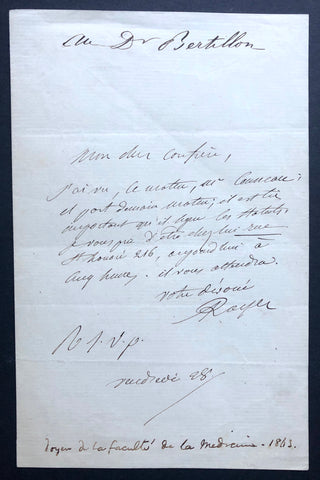 au Dr Bertillon
Mon cher confrère,
J'ai vu, ce matin, Mr Conneau;
il part demain matin; il est très
important qu'il signe les Statuts.
je vous prie d'être chez lui rue
St honoré 216, aujourd'hui à
cinq heures. il vous attendra.
votre dévoué
Rayer
R. S. V. p.
vendredi 28
Doyen de la faculté de la Medecine - 1863.